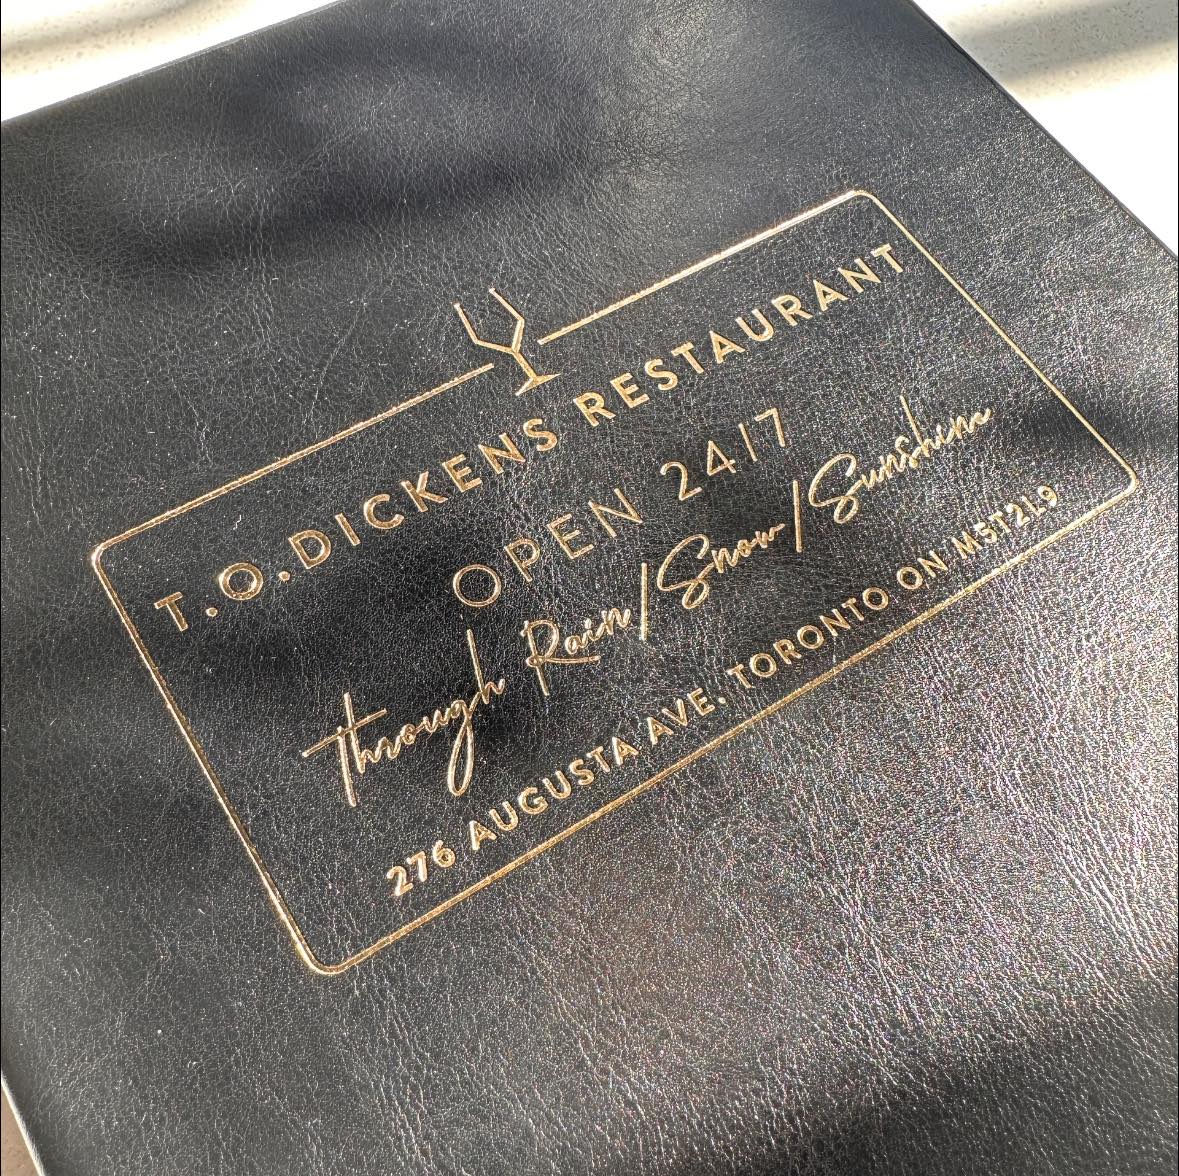 T.O.DICKENS RESTAURANT
OPEN 24/7
Through Rain/Snow/Sunshine
276 AUGUSTA AVE. TORONTO ON M5T2L9